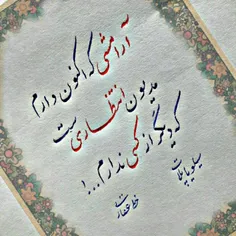 آرامشی که اکنون دارم
مدیون انتظاری ست
که دیگر از کسی ندارم...!
سیلویا پلات